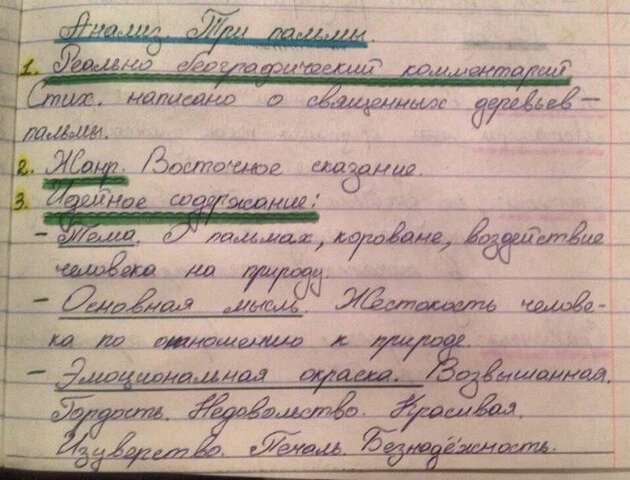 Анализ. Три пальмы.
1. Реально биографический комментарий
Стих. написано о священных деревьев –
пальмы.
2. Жанр. Восточное сказание.
3. Идейное содержание:
– Тема. О пальмах, короване, воздействие
человека на природу.
– Основная мысль. Жестокость челове-
ка по отношению к природе.
– Эмоциональная окраска. Возвышанная.
Гордость. Недовольство. Красивая.
Изуверство. Печаль. Безнадёжность.